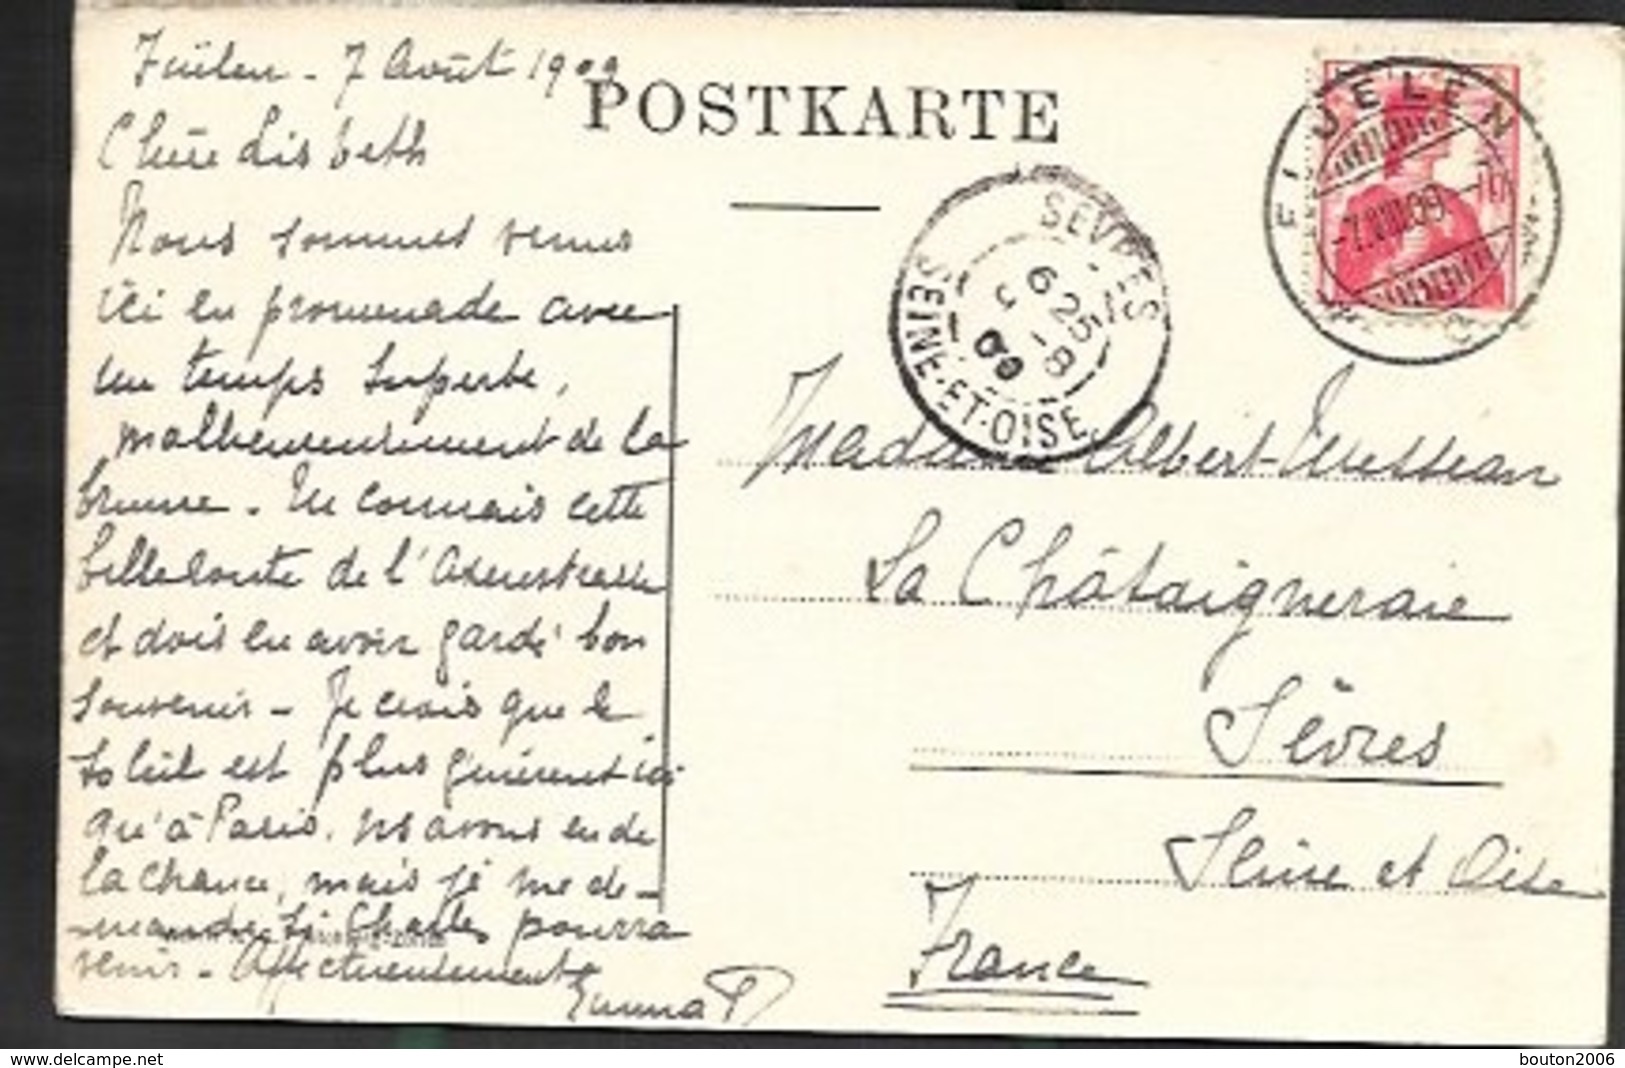 Flüelen - 7 Août 1909
Chère Lisbeth
Nous sommes venus
ici en promenade avec
un temps superbe,
malheureusement de la
brume. Tu connais cette
belle route de l'Axenstrasse
et dois en avoir gardé bon
souvenir - Je crois que le
soleil est plus fréquent ici
qu'à Paris. ns avons eu de
la chance, mais je me de-
-mande si Charles pourra
venir - Affectueusement
Emma P
POSTKARTE
SEVRES
6 25
5 - 8
09
SEINE-ET-OISE
FLUELEN
-7.VIII.09
-10
Madame Albert
La Châtaigneraie
Sèvres
Seine et Oise
France
www.delcampe.net
bouton2006